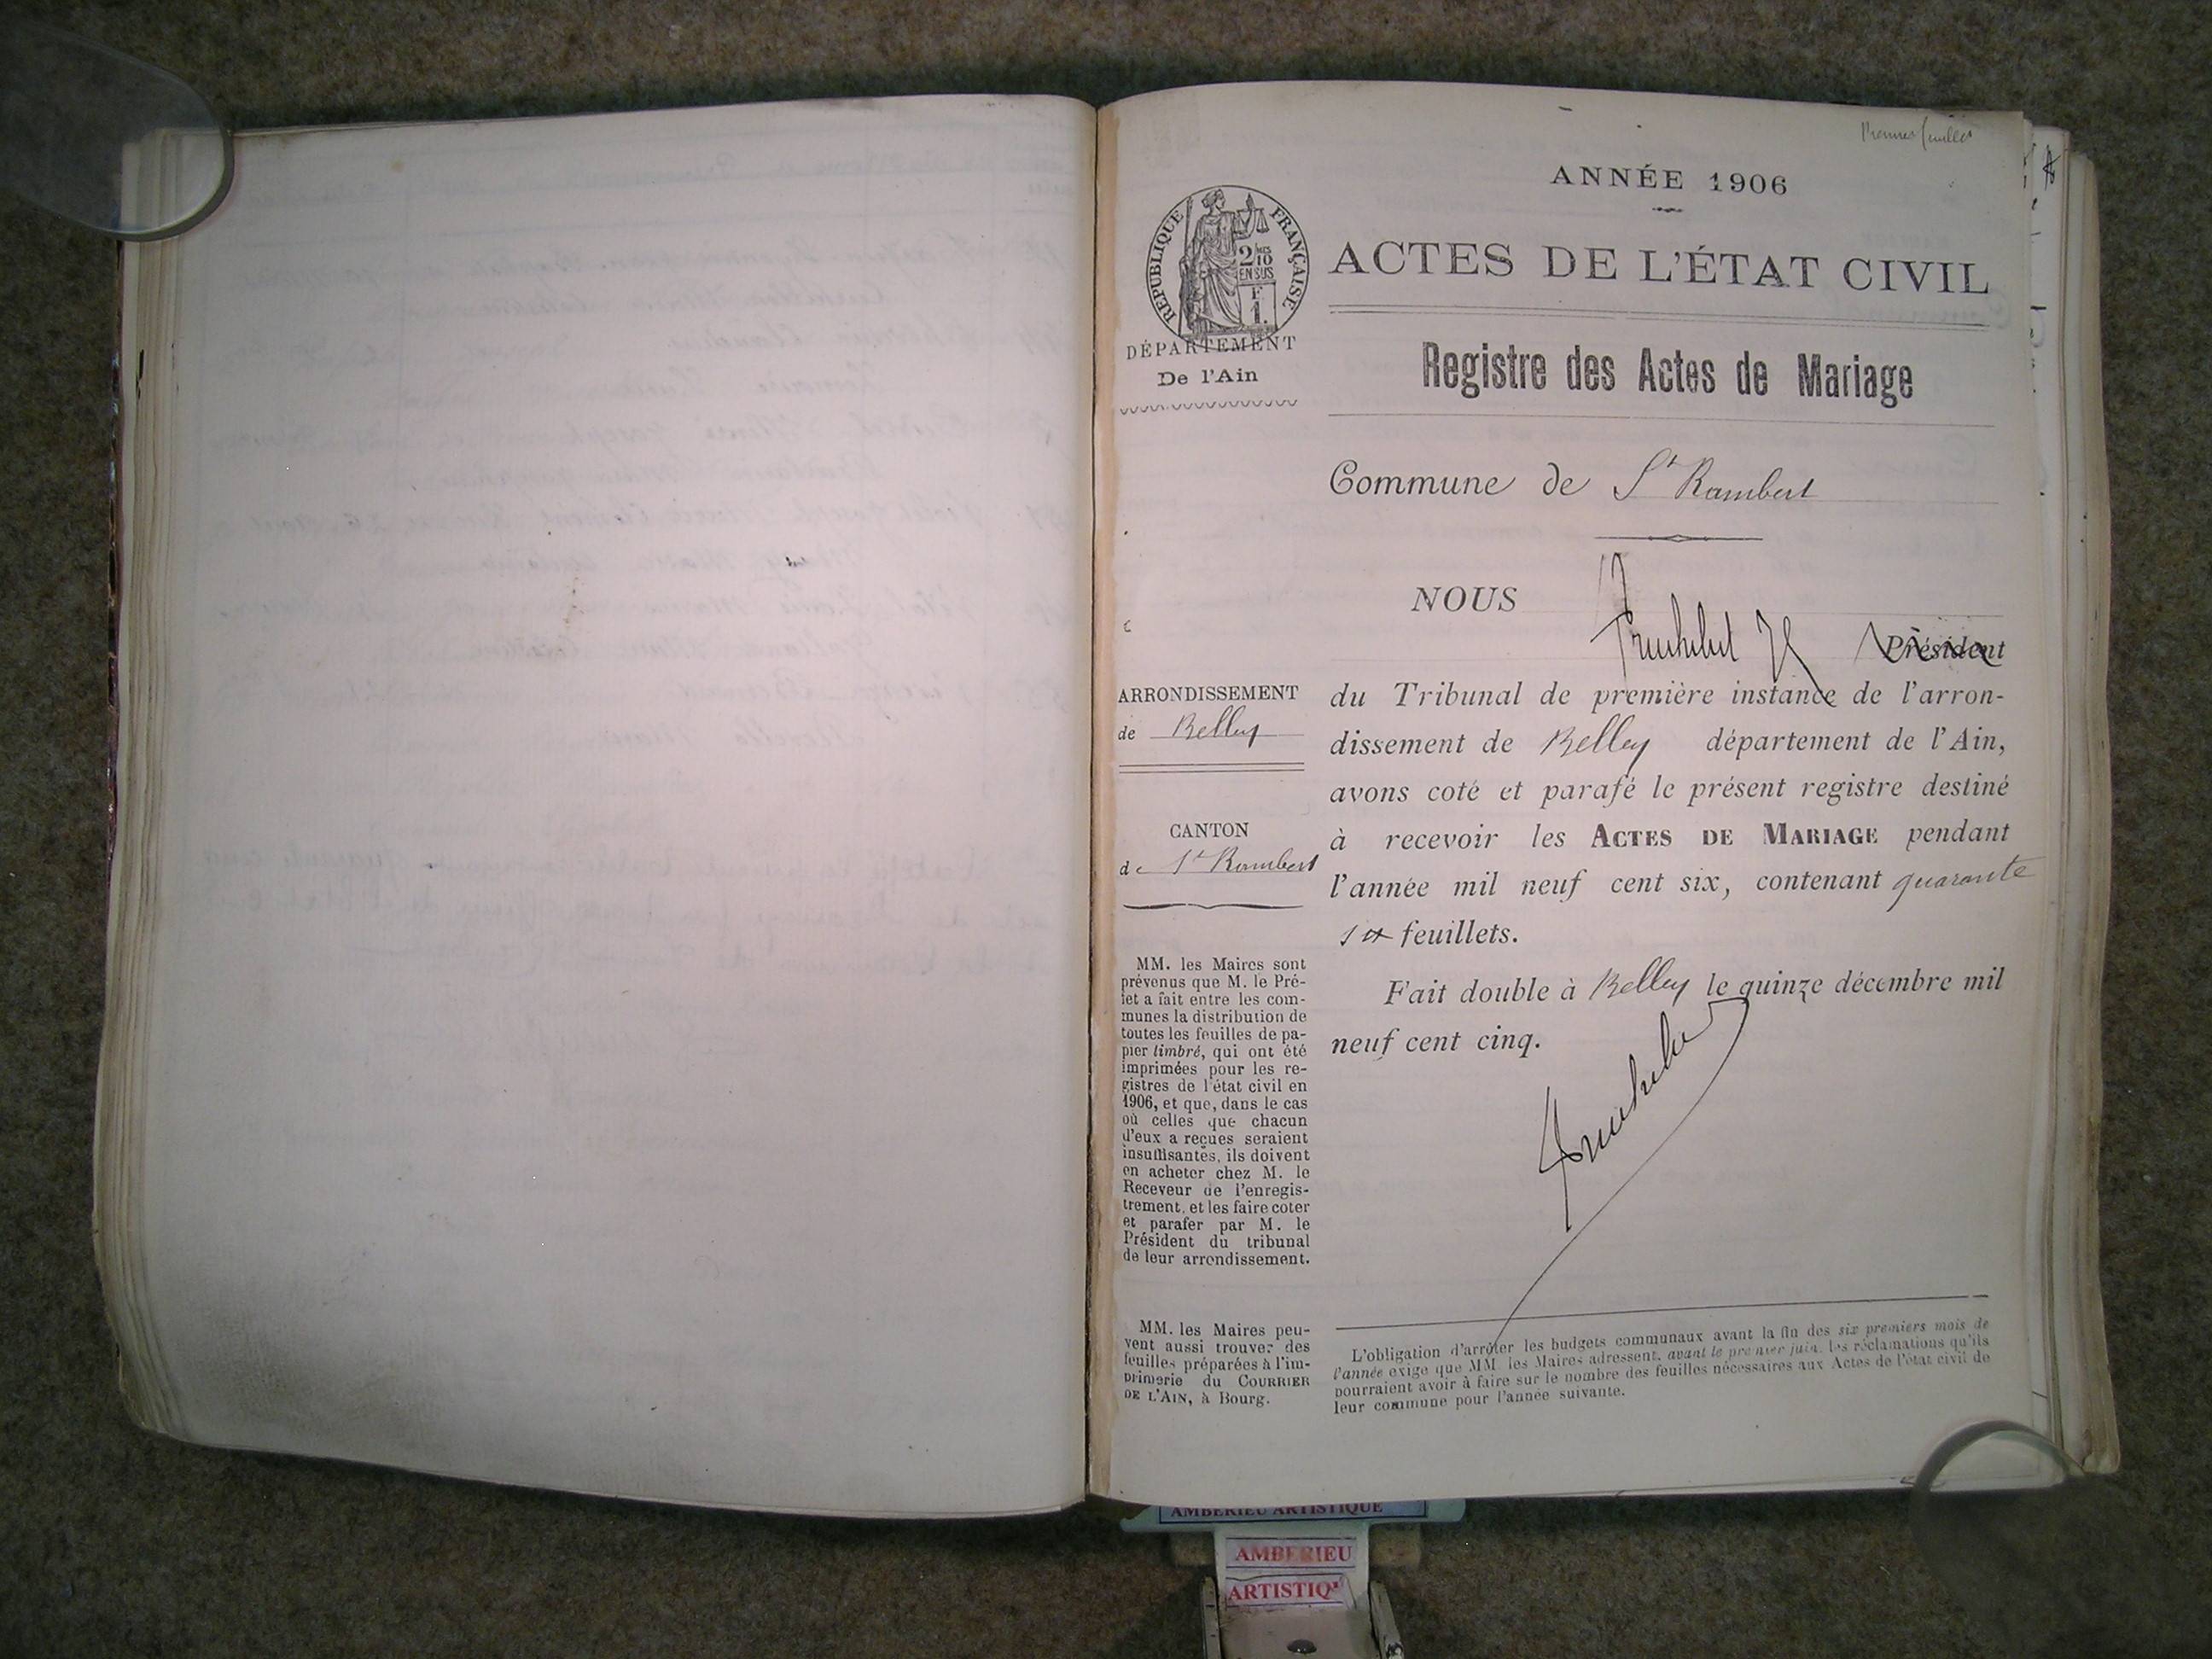 ANNÉE 1906
RÉPUBLIQUE FRANÇAISE
2/10
EN SUS
F
1.
ACTES DE L'ÉTAT CIVIL
DÉPARTEMENT
De l'Ain
Registre des Actes de Mariage
Commune de St Rambert
NOUS
Président
ARRONDISSEMENT
de Belley
du Tribunal de première instance de l'arron-
dissement de Belley département de l'Ain,
avons coté et parafé le présent registre destiné
à recevoir les ACTES DE MARIAGE pendant
l'année mil neuf cent six, contenant quarante
six feuillets.
CANTON
de St Rambert
Fait double à Belley le quinze décembre mil
neuf cent cinq.
MM. les Maires sont
prévenus que M. le Pré-
fet a fait entre les com-
munes la distribution de
toutes les feuilles de pa-
pier timbré, qui ont été
imprimées pour les re-
gistres de l'état civil en
1906, et que, dans le cas
où celles que chacun
d'eux a reçues seraient
insuffisantes, ils doivent
en acheter chez M. le
Receveur de l'enregis-
trement, et les faire coter
et parafer par M. le
Président du tribunal
de leur arrondissement.
MM. les Maires peu-
vent aussi trouver des
feuilles préparées à l'im-
primerie du COURRIER
DE L'AIN, à Bourg.
L'obligation d'arrêter les budgets communaux avant la fin des six premiers mois de
l'année exige que MM. les Maires adressent, avant le premier juin, les réclamations qu'ils
pourraient avoir à faire sur le nombre des feuilles nécessaires aux Actes de l'état civil de
leur commune pour l'année suivante.
AMBERIEU ARTISTIQUE
AMBERIEU
ARTISTIQ